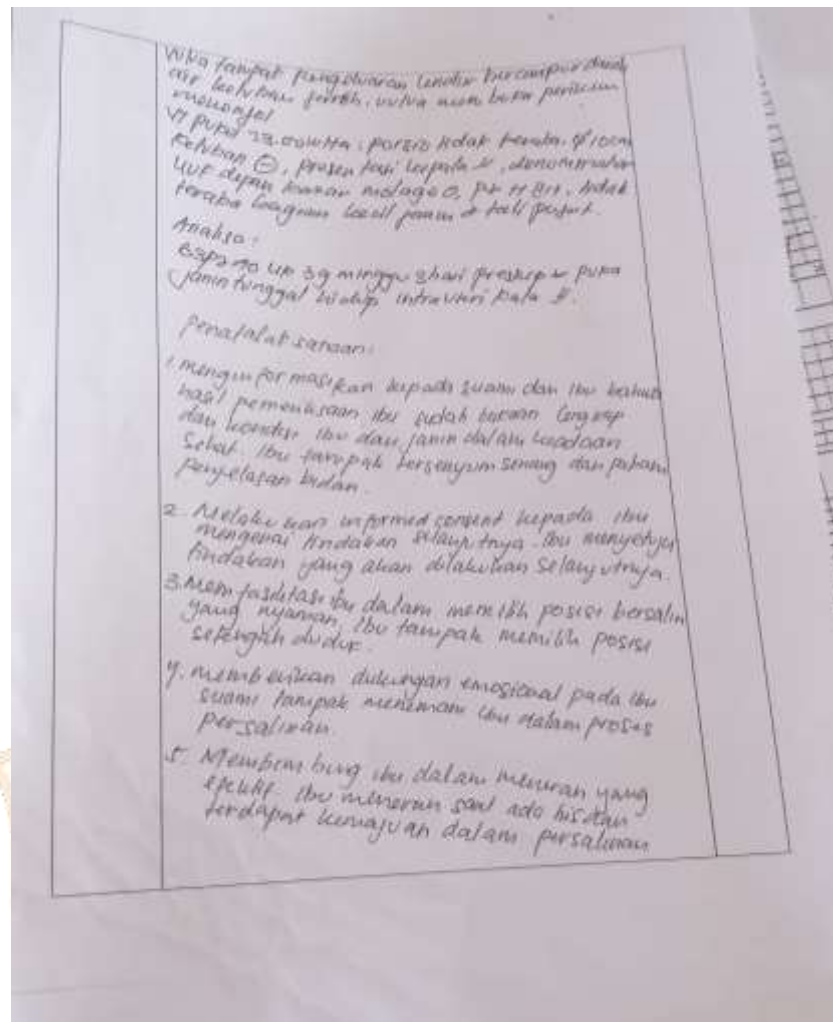 vulva tampak pengeluaran lendir bercampur darah
air ketuban jernih, vulva membuka perineum
menonjol
VT pukul 23.00 wita, porsio tidak teraba, Ø 10 cm
Ketuban ⊖, presentasi kepala ↓, denominator
UUK depan kanan molage 0, ↓ H III, tidak
teraba bagian kecil janin & tali pusat.
Analisa:
UK 39 minggu hari preskep puka
janin tunggal hidup intrauteri kala II.
penatalaksanaan:
1. menginformasikan kepada suami dan ibu bahwa
hasil pemeriksaan ibu sudah bukaan lengkap
dan kondisi ibu dan janin dalam keadaan
Sehat. Ibu tampak tersenyum senang dan paham
penjelasan bidan.
2. Melakukan informed consent kepada ibu
mengenai tindakan selanjutnya. Ibu menyetujui
tindakan yang akan dilakukan selanjutnya.
3. Memfasilitasi ibu dalam memilih posisi bersalin
yang nyaman, ibu tampak memilih posisi
setengah duduk.
4. memberikan dukungan emosional pada ibu
suami tampak menemani ibu dalam proses
persalinan.
5. Membimbing ibu dalam meneran yang
efektif. ibu meneran saat ada his dan
terdapat kemajuan dalam persalinan